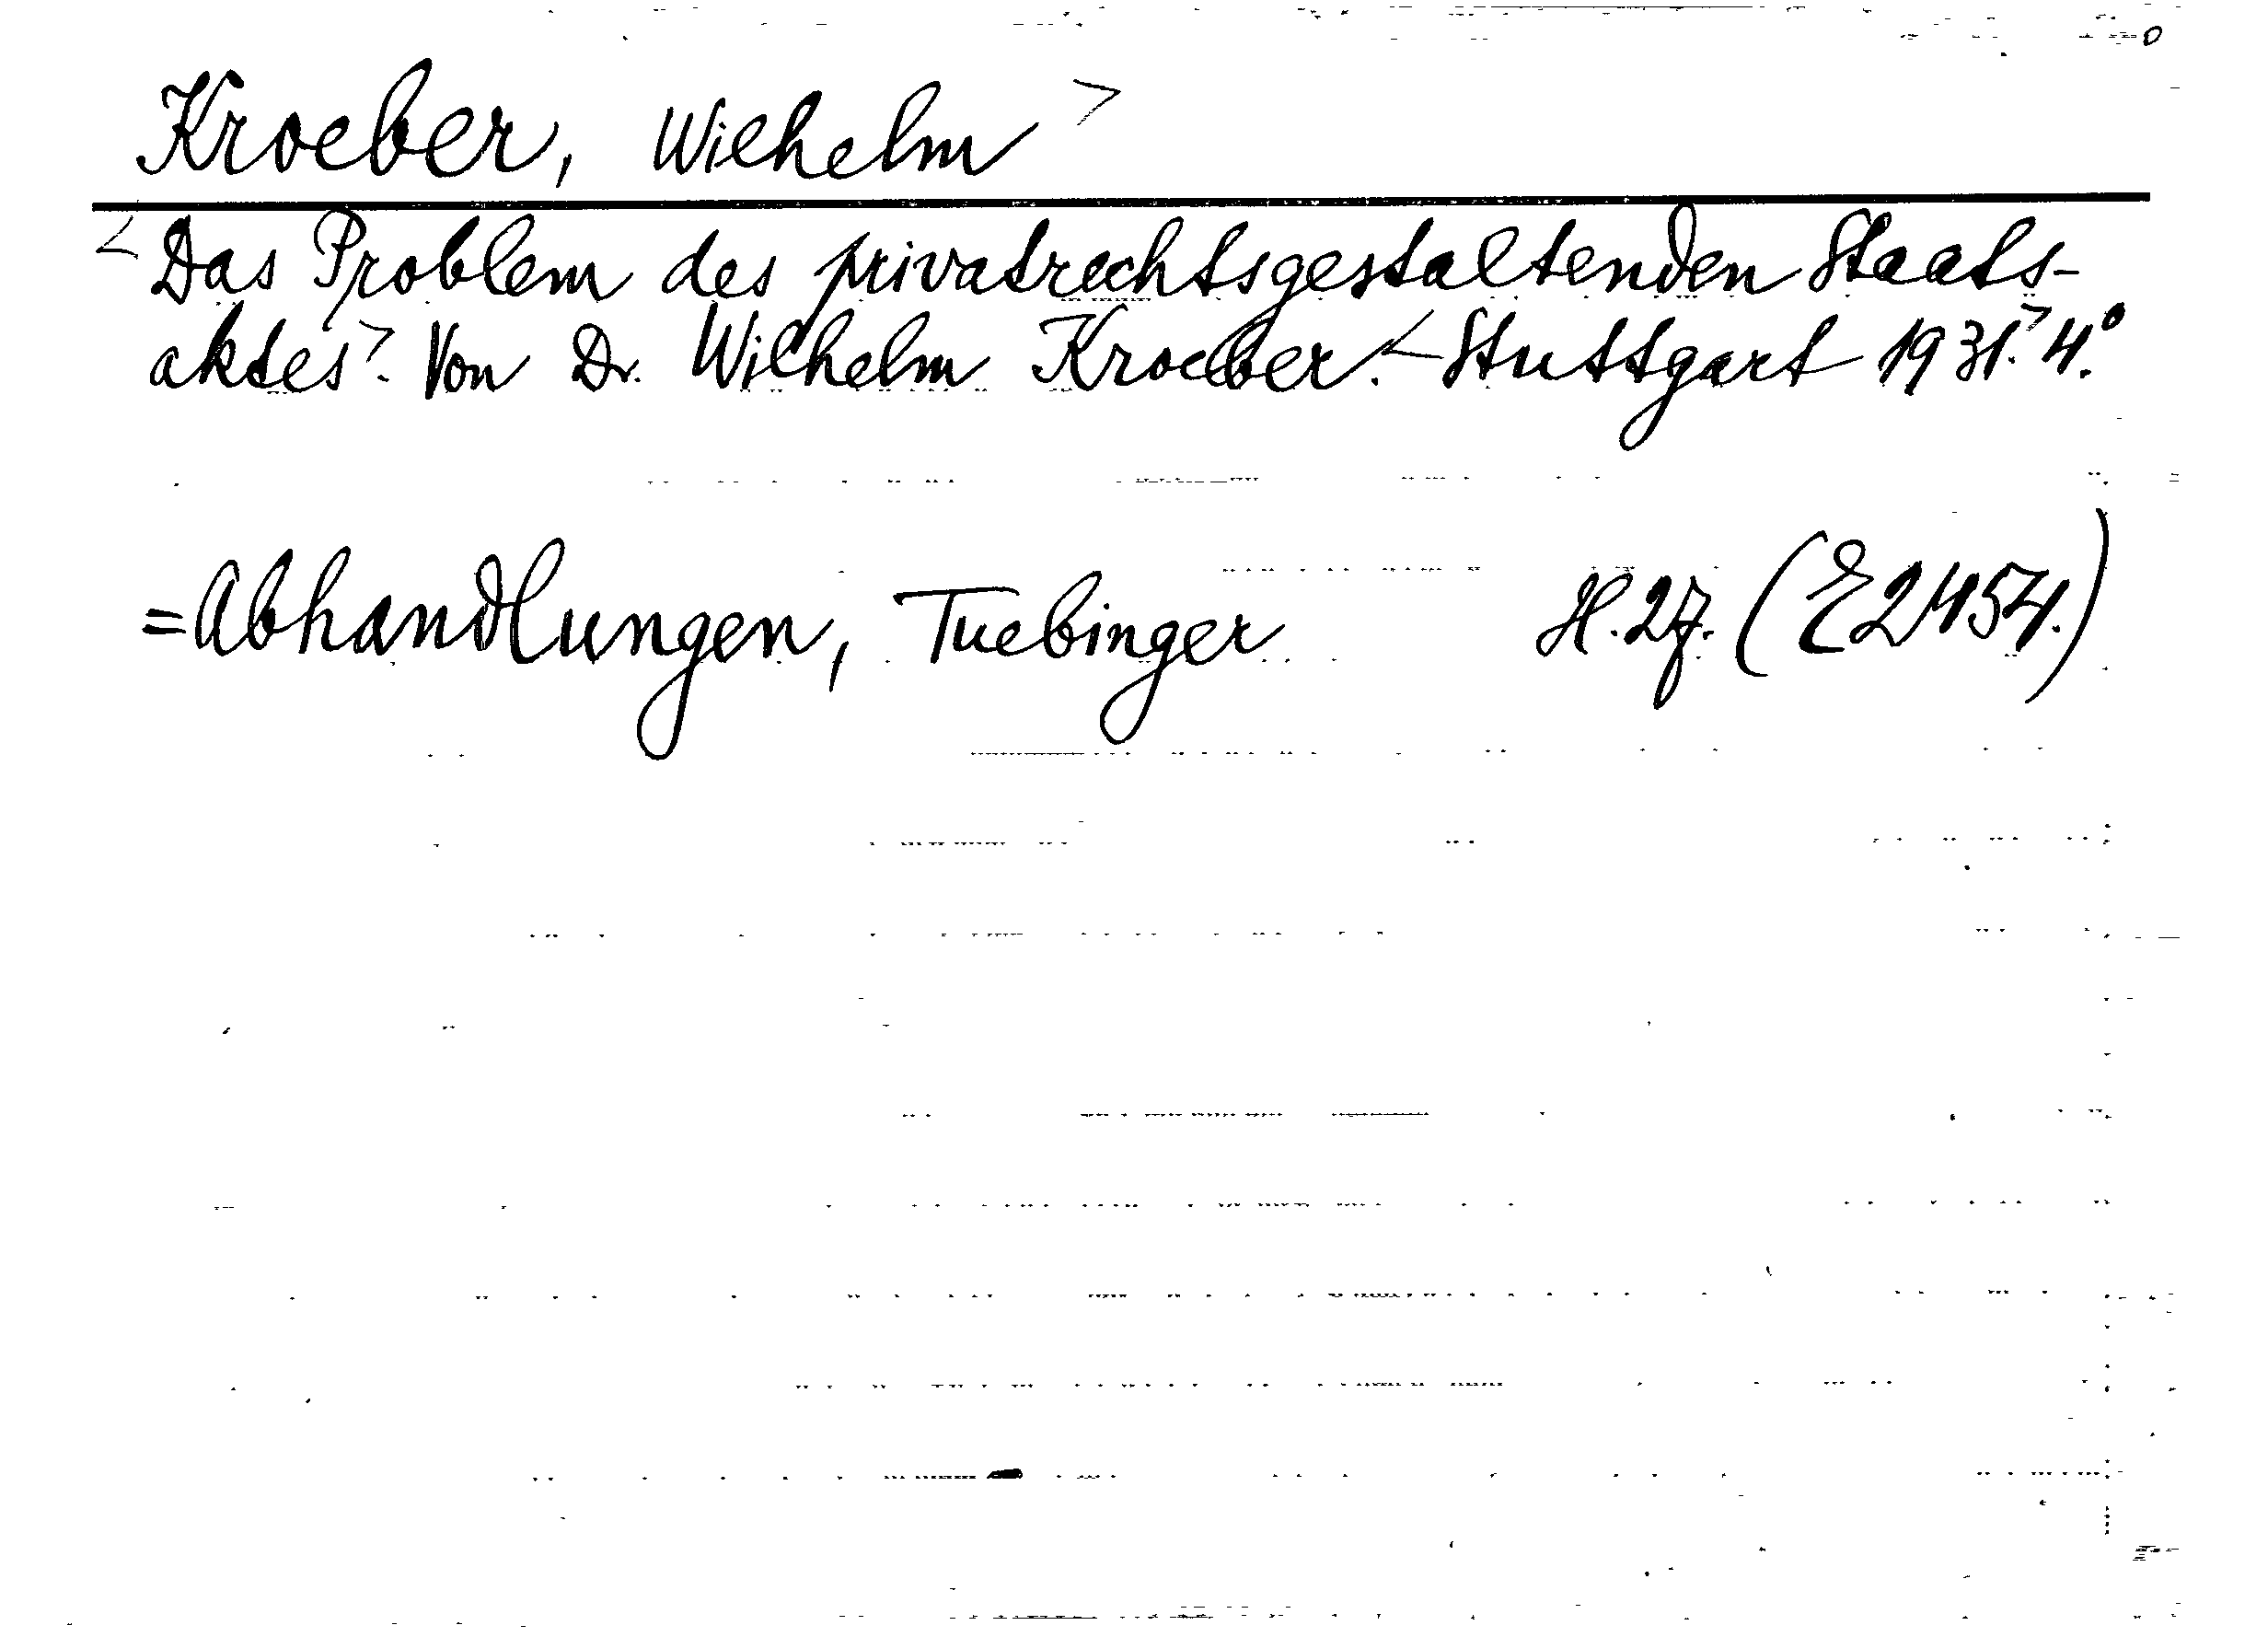 Kroeber, Wilhelm >
< Das Problem des privatrechtsgestaltenden Staats-
aktes>. Von Dr. Wilhelm Kroeber. < Stuttgart 1931.> 4.º
= Abhandlungen, Tuebinger H. 27. (E2454.)